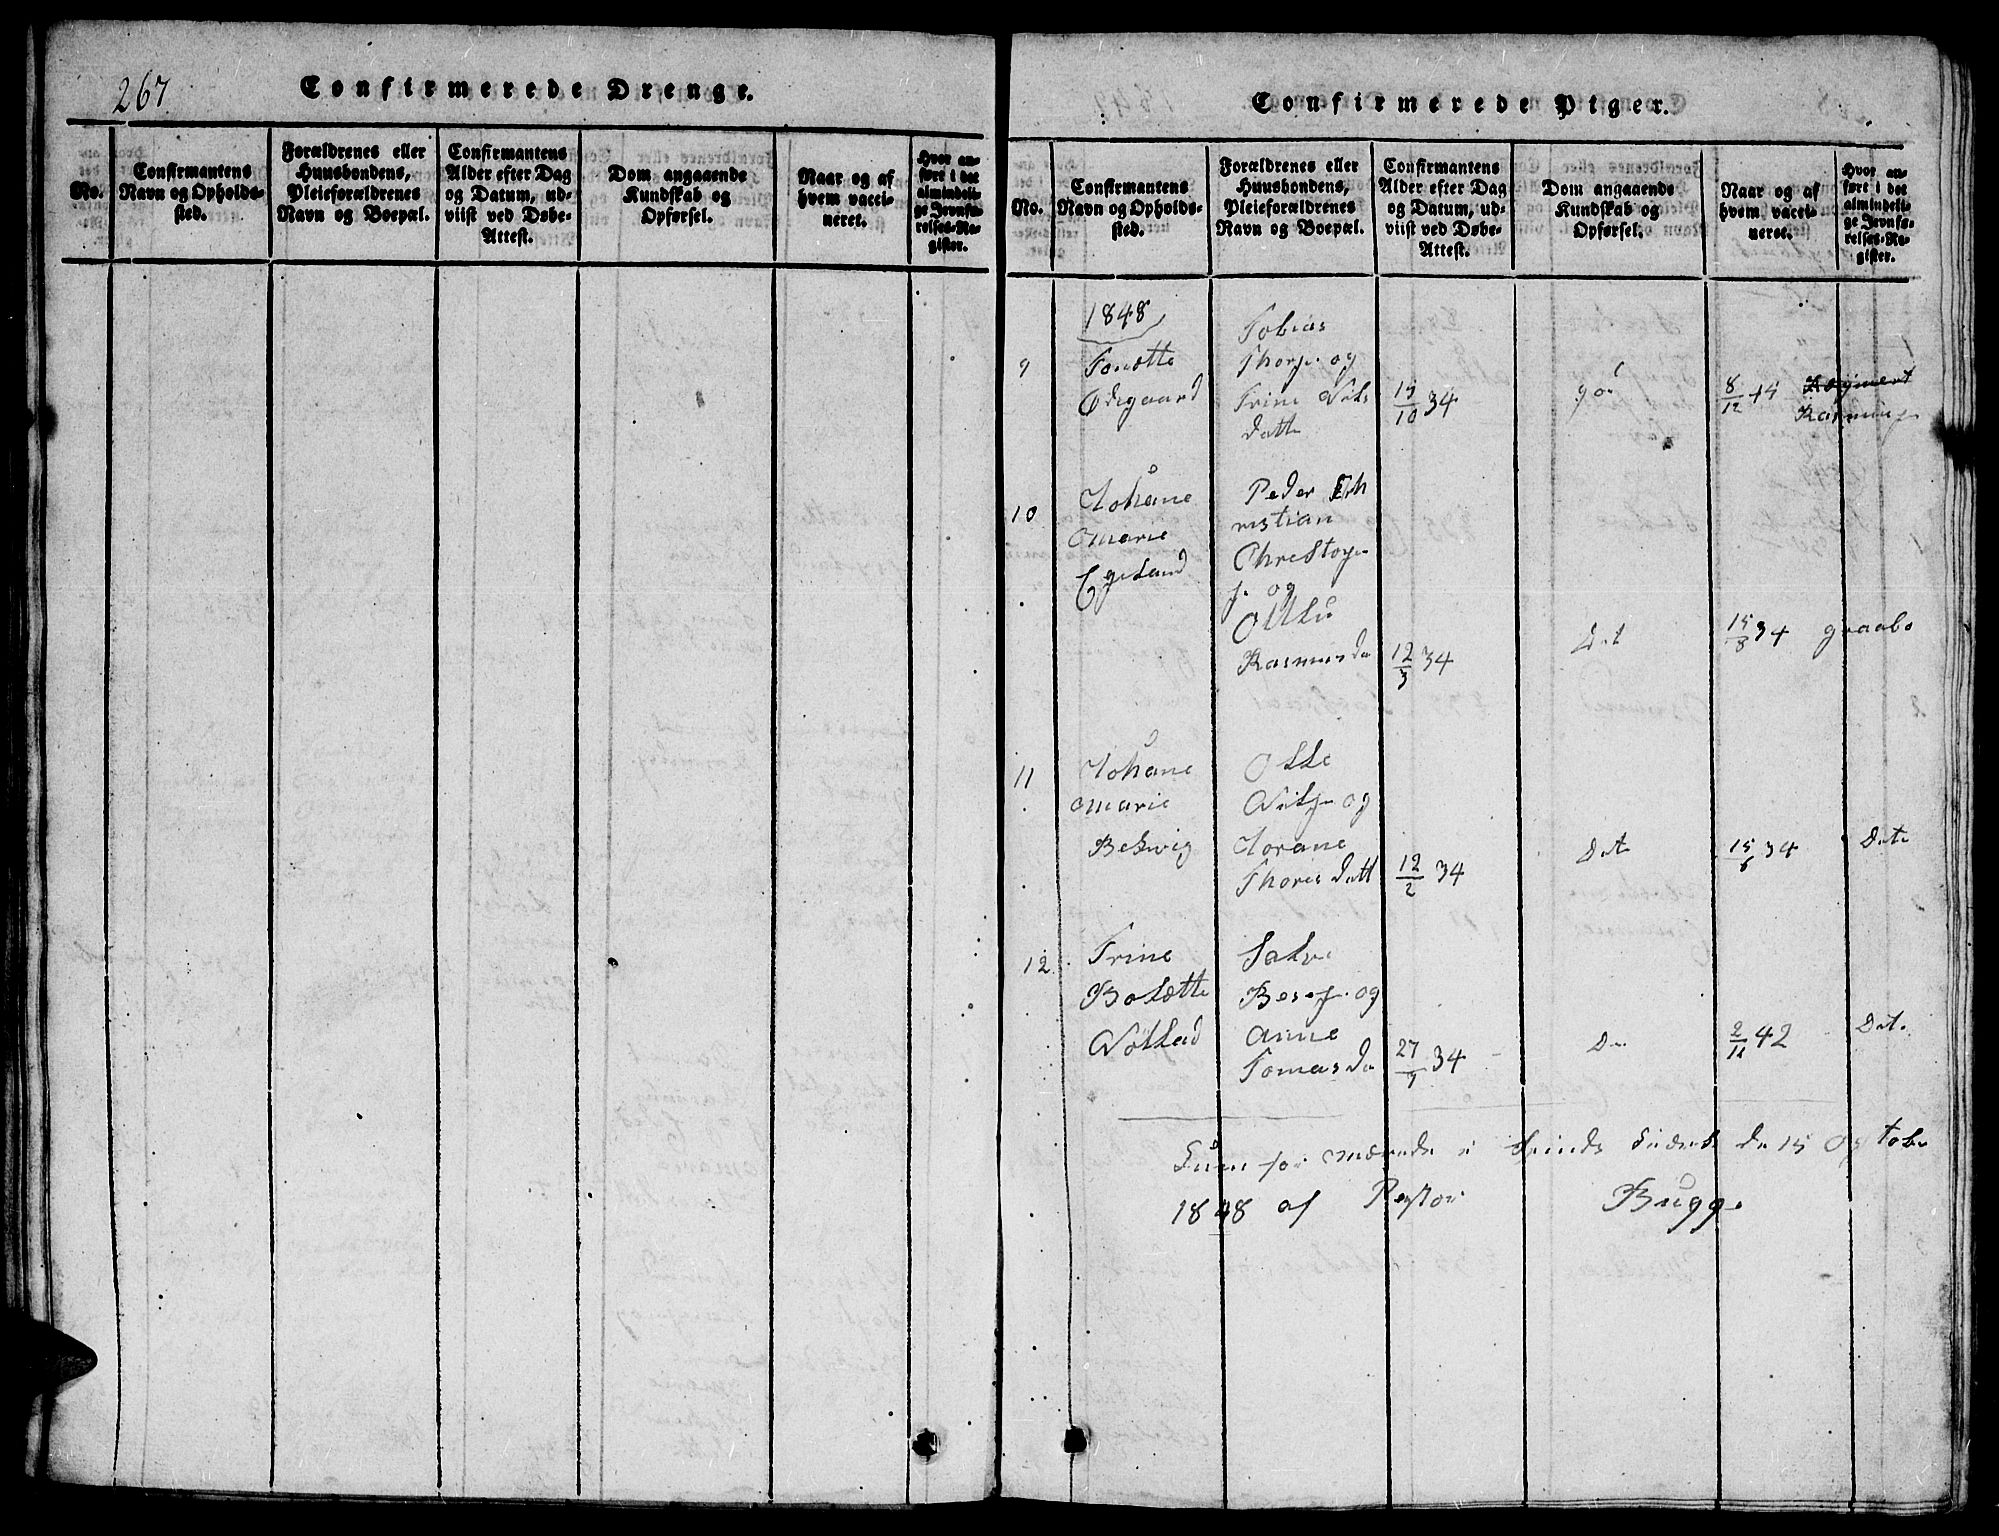 267
Confirmerede Drenge.
No.
Confirmantens
Navn og Opholds-
sted.
Forældrenes eller
Huusbondens,
Pleieforældrenes
Navn og Boepæl.
Confirmantens
Alder efter Dag
og Datum, ud-
viist ved Døbe-
Attest.
Dom angaaende
Kundskab og
Opførsel.
Naar og af
hvem vacci-
neret.
Hvor an-
ført i det
almindeli-
ge Jevnfø-
relses-Re-
gister.
Confirmerede Piger.
No.
Confirmantens
Navn og Opholds-
sted.
Forældrenes eller
Huusbondens,
Pleieforældrenes
Navn og Boepæl.
Confirmantens
Alder efter Dag
og Datum, ud-
viist ved Døbe-
Attest.
Dom angaaende
Kundskab og
Opførsel.
Naar og af
hvem vacci-
neret.
Hvor an-
ført i det
almindeli-
ge Jevnfø-
relses-Re-
gister.
1848
9
Tonætte
Ødegaard
Tobias
Thorj. og
Trine Nils
datte
15/10 34
8/12 44
Rasmus
10
Johane
Marie
Egeland
Peder
ristian
Christop
f. og
Rasmusda
12/3 34
Det
15/8 34 graabo
11
Johane
Marie
Behvig
Otte
og
Jorane
Thores datt
12/2 34
Det
34
Dete
12
Trine
Bolætte
Salve
og
Anne
Tomasda
27/9 34
De
42
Det.
i
de 15 Octobe
1848 af Pastor Bugge